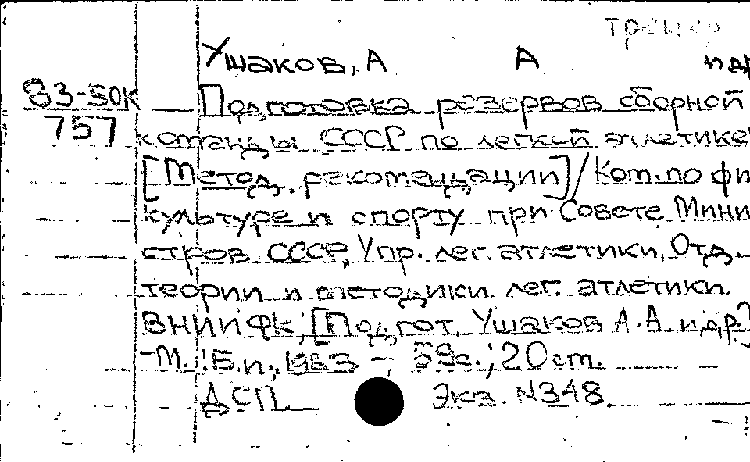 тренер
Ушаков, А А и др
83-50К Подготовка резервов сборной
757 команды СССР по легкой атлетике
[Метод. рекомендации] / Ком. по физ
культуре и спорту при Совете Мини
стров СССР, Упр. лег. атлетики, Отд.
теории и методики лег. атлетики.
ВНИИФК; [Подгот. Ушаков А.А. и др.]
-М.: Б.и., 1983 -, 59с.; 20 cm.
ДСП Экз. N348.